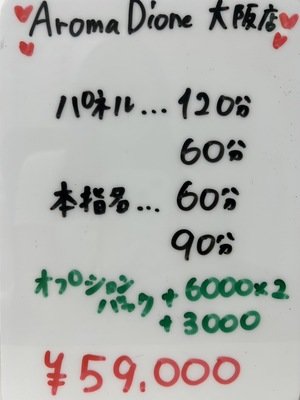 Aroma Dione 大阪店
パネル... 120分
60分
本指名... 60分
90分
オプション
パック + 6000×2
+ 3000
¥59.000